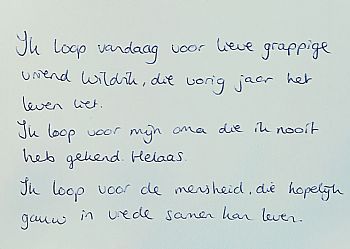 Ik loop vandaag voor lieve grappige
vriend Wildrik, die vorig jaar het
leven liet.
Ik loop voor mijn oma die ik nooit
heb gekend. Helaas.
Ik loop voor de mensheid, die hopelijk
gauw in vrede samen kan leven.